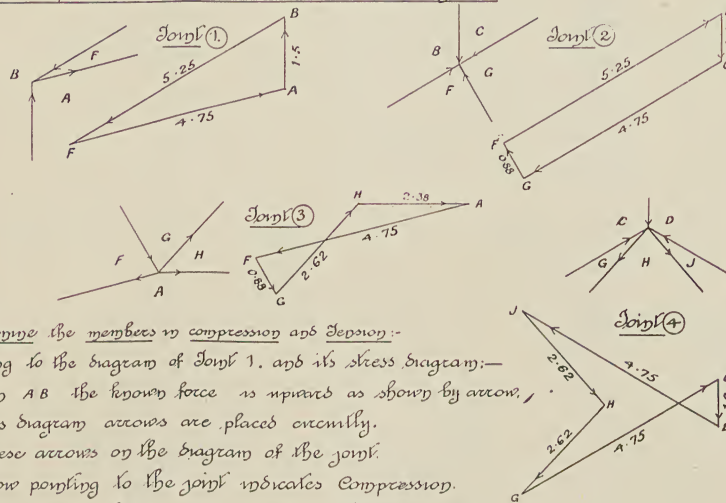 Joint 1.
B
F
A
B
5.25
1.5
F
4.75
A
Joint 2
C
B
G
F
5.25
4.75
F
0.88
G
Joint 3
F
G
H
A
H
2.38
A
4.75
F
0.88
2.62
G
C
D
G
H
J
Joint 4
J
2.62
4.75
H
2.62
4.75
G
the members in compression and Tension:-
to the diagram of Joint 1. and its stress diagram:—
AB the known force is upward as shown by arrow,
diagram arrows are placed circuitly.
arrows on the diagram of the joint.
pointing to the joint indicates Compression.